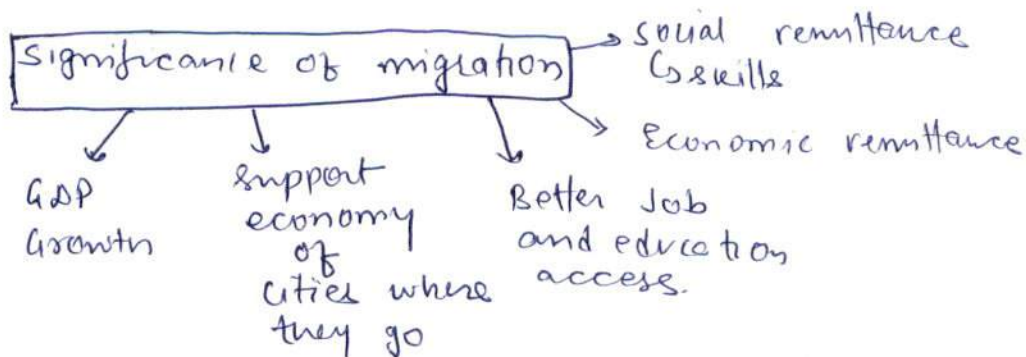 Significance of migration
social remittance
↳ skills
Economic remittance
GDP
Growth
support
economy
of
cities where
they go
Better Job
and education
access.